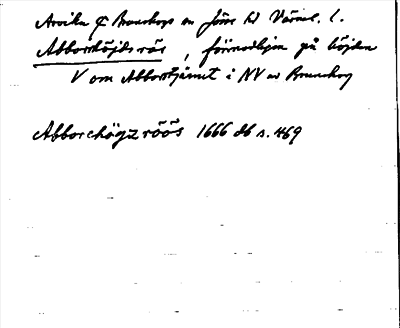 Arvika & Brunskogs sn Jösse hd Värml. l.
Abborrhöjds rös, förmodligen på höjden
V om Abborrtjärnet i NV av Brunskog
Abborchögz röös 1666 db s. 469